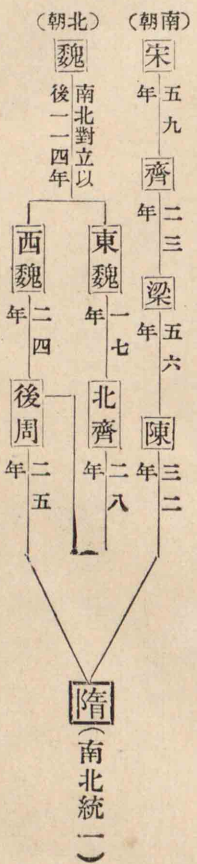 (南朝)
宋
五九年
齊
二三年
梁
五六年
陳
三二年
(北朝)
魏
南北對立以
後一一四年
東魏
一七年
北齊
二八年
西魏
二四年
後周
二五年
隋
(南北統一)